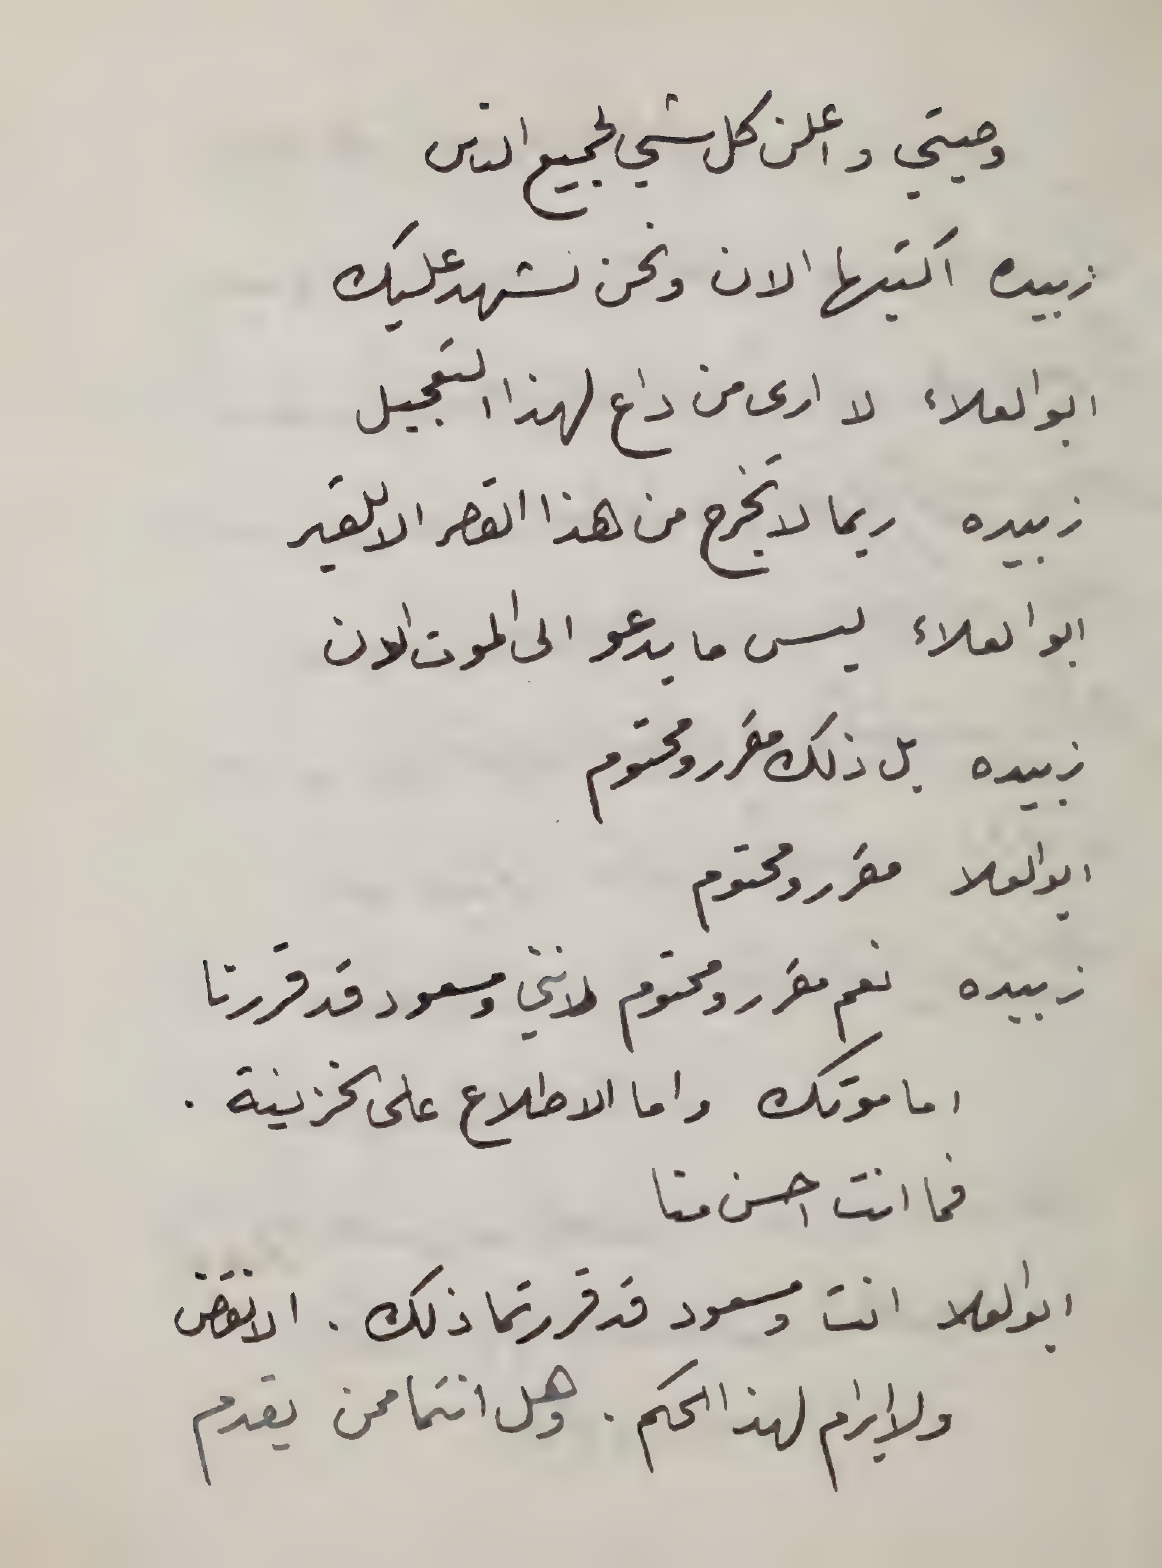 وصيتي واعلن كل شي لجميع الناس
زبيده اكتبها الان ونحن نشهد عليك
ابوالعلاء لا ارى من داع لهذا التعجيل
زبيده ربما لا تخرج من هذا القصر الا للقبر
ابوالعلاء ليس ما يدعو الى الموت الان
زبيده بل ذلك مقرر ومحتوم
ابوالعلا مقرر ومحتوم
زبيده نعم مقرر ومحتوم لانني ومسعود قد قررنا
اما موتك واما الاطلاع على الخزينة .
فما انت احسن منا
ابوالعلا انت ومسعود قد قررتما ذلك . الا نقض
ولا ابرام لهذا الحكم . وهل انتما ممن يقدم